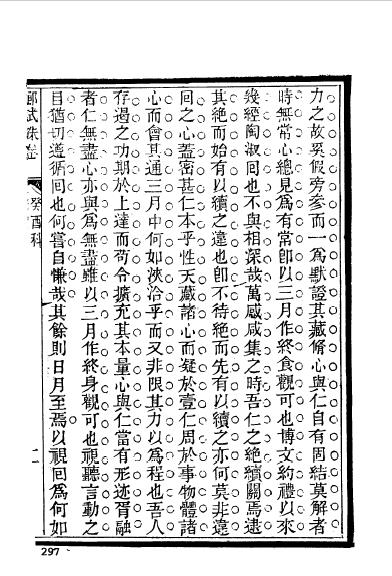 力之故奚假旁參而一為默證其藏脩心與仁自有固結莫解者
時無常心總見為有常即以三月作終食觀可也博文約禮以來
幾經陶淑回也不與相深哉萬感咸集之時吾仁之絕續關焉逮
其絕而始有以續之違也即不待絕而先有以續之亦何莫非違
回之心蓋密甚仁本乎性天藏諸心而凝於壹仁周於事物體諸
心而會其通三月中何如浹洽乎而又非限其力以為程也吾人
存遏之功期於上達而苟令擴充其本量心與仁當有形迹胥融
者仁無盡心亦與為無盡雖以三月作終身觀可也視聽言動之
目猶切遵循回也何嘗自慊哉其餘則日月至焉以視回為何如
鄉試硃卷 癸酉科 二
297